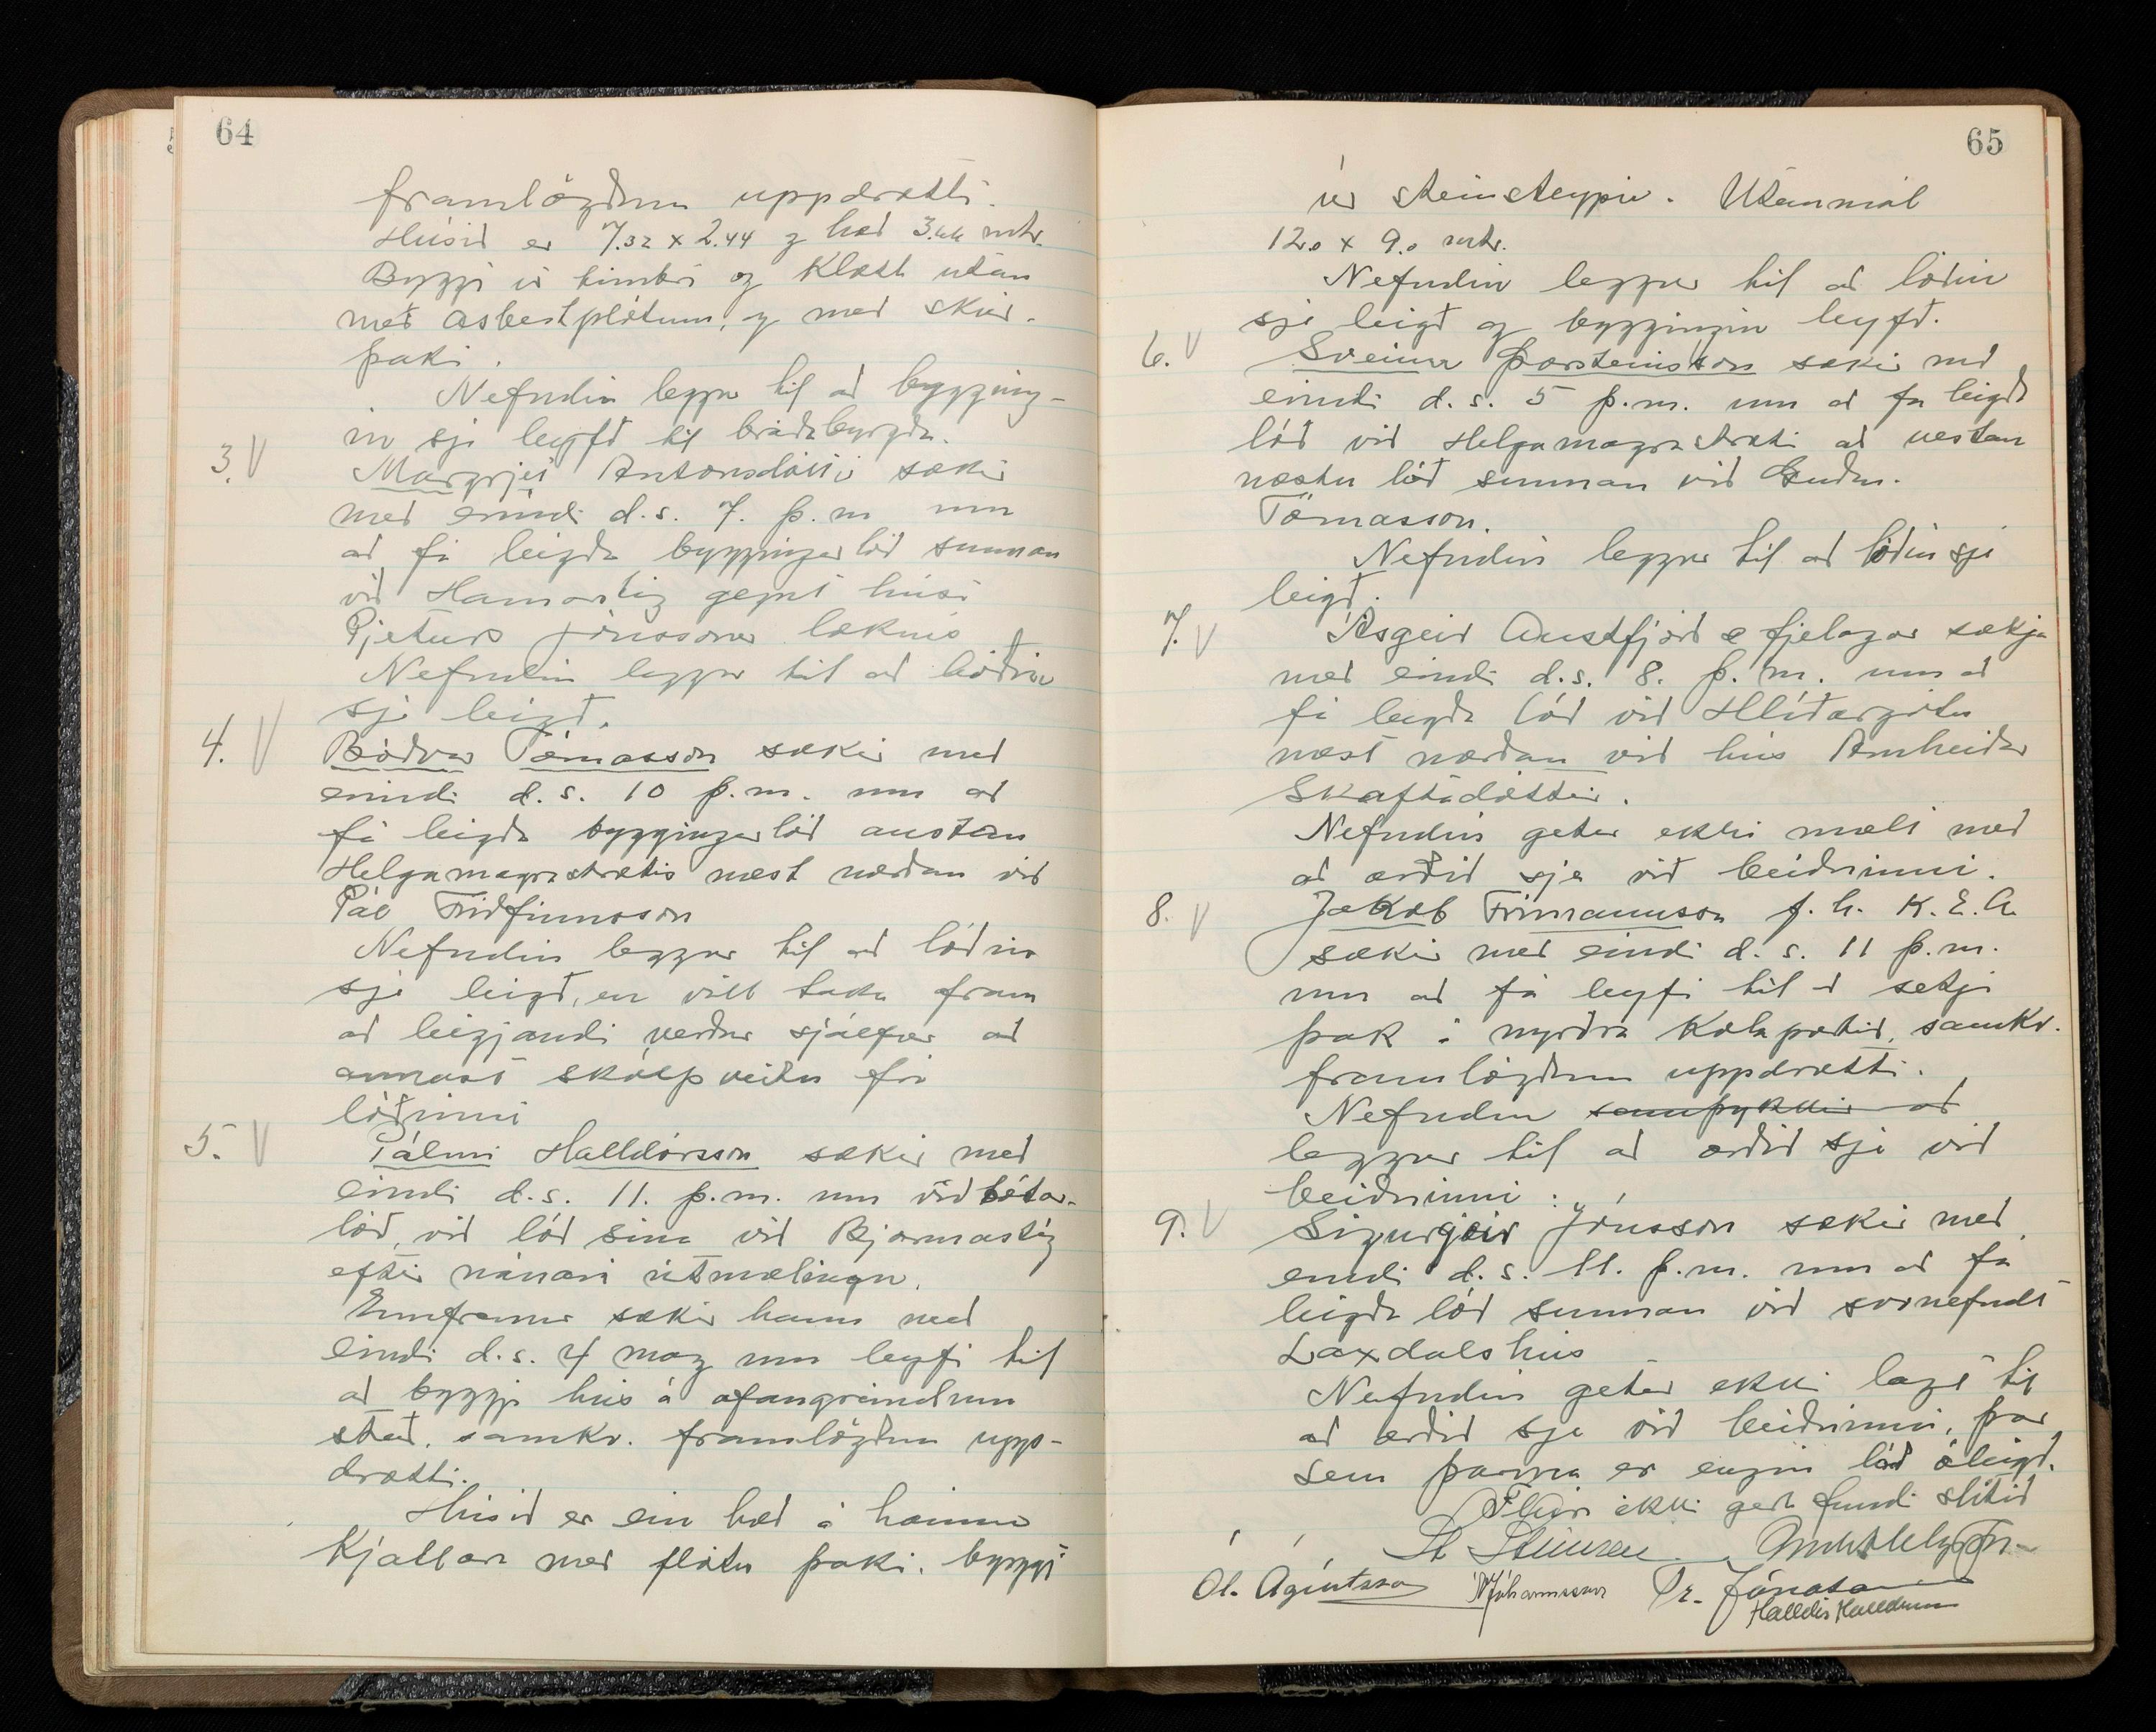 64
framlögðum uppdrætti.
Húsið er 7.32 x 2.44 og hæð 3.66 mtr.
Byggt úr timbri og klætt utan
með asbestplötum, og með skúr-
þaki.
Nefndin leggur til að bygging-
in sje leyfð til bráðabyrgða.
3. V
Margrjet Antonsdóttir sækir
með erindi d.s. 7. þ.m um
að fá leigða byggingarlóð sunnan
við Hamarstíg gegnt húsi
Pjeturs Jónssonar læknis
Nefndin leggur til að lóðin
sje leigð.
4. V
Böðvar Tómasson sækir með
erindi d.s. 10 þ.m. um að
fá leigða byggingarlóð austan
Helgamagrastrætis næst norðan við
Pál Friðfinnsson
Nefndin leggur til að lóðin
sje leigð, en vill taka fram
að leigjandi verður sjálfur að
annast skólpveitu frá
lóðinni
5. V
Pálmi Halldórsson sækir með
eindi d.s. 11. þ.m. um viðbótar-
lóð, við lóð sína við Bjarmastíg
eftir nánari útmælingu.
Ennfremur sækir hann með
eindi d.s. 4 maý um leyfi til
að byggja hús á ofangreindum
stað, samkv. framlögðum upp-
drætti.
Húsið er ein hæð á háum
kjallara með flötu þaki, byggt
65
úr steinsteypu. Utanmál
12.0 x 9.0 mtr.
Nefndin leggur til að lóðin
sje leigð og byggingin leyfð.
6. V
Sveinn Þorsteinsson sækir með
eindi d.s. 5 þ.m. um að fá leigða
lóð við Helgamagrastræti að vestan
næstu lóð sunnan við Guðm.
Tómasson.
Nefndin leggur til að lóðin sje
leigð.
7. V
Ásgeir Austfjörð & fjelagar sækja
með eindi d.s. 8. þ.m. um að
fá leigða lóð við Hlíðargötu
næst norðan við hús Arnheiðar
Skaftadóttir.
Nefndin getur ekki mælt með
að orðið sje við beiðninni.
8. V
Jakob Frímannsson f.h. K.E.A.
sækir með eindi d.s. 11 þ.m.
um að fá leyfi til að setja
þak á nyrðra kolaportið, samkv.
framlögðum uppdrætti.
Nefndin samþykkir að
leggur til að orðið sje við
beiðninni.
9. V
Sigurgeir Jónsson sækir með
eindi d.s. 11. þ.m. um að fá
leigða lóð sunnan við svonefnt
Laxdalshús
Nefndin getur ekki lagt til
að orðið sje við beiðninni, þar
sem þarna er engin lóð óleigð.
Fleira ekki gert fundi slitið
St Steinsen
Ól. Ágústsson Jóhannsson Tr. Jónatansson
Halldór Halldórsson